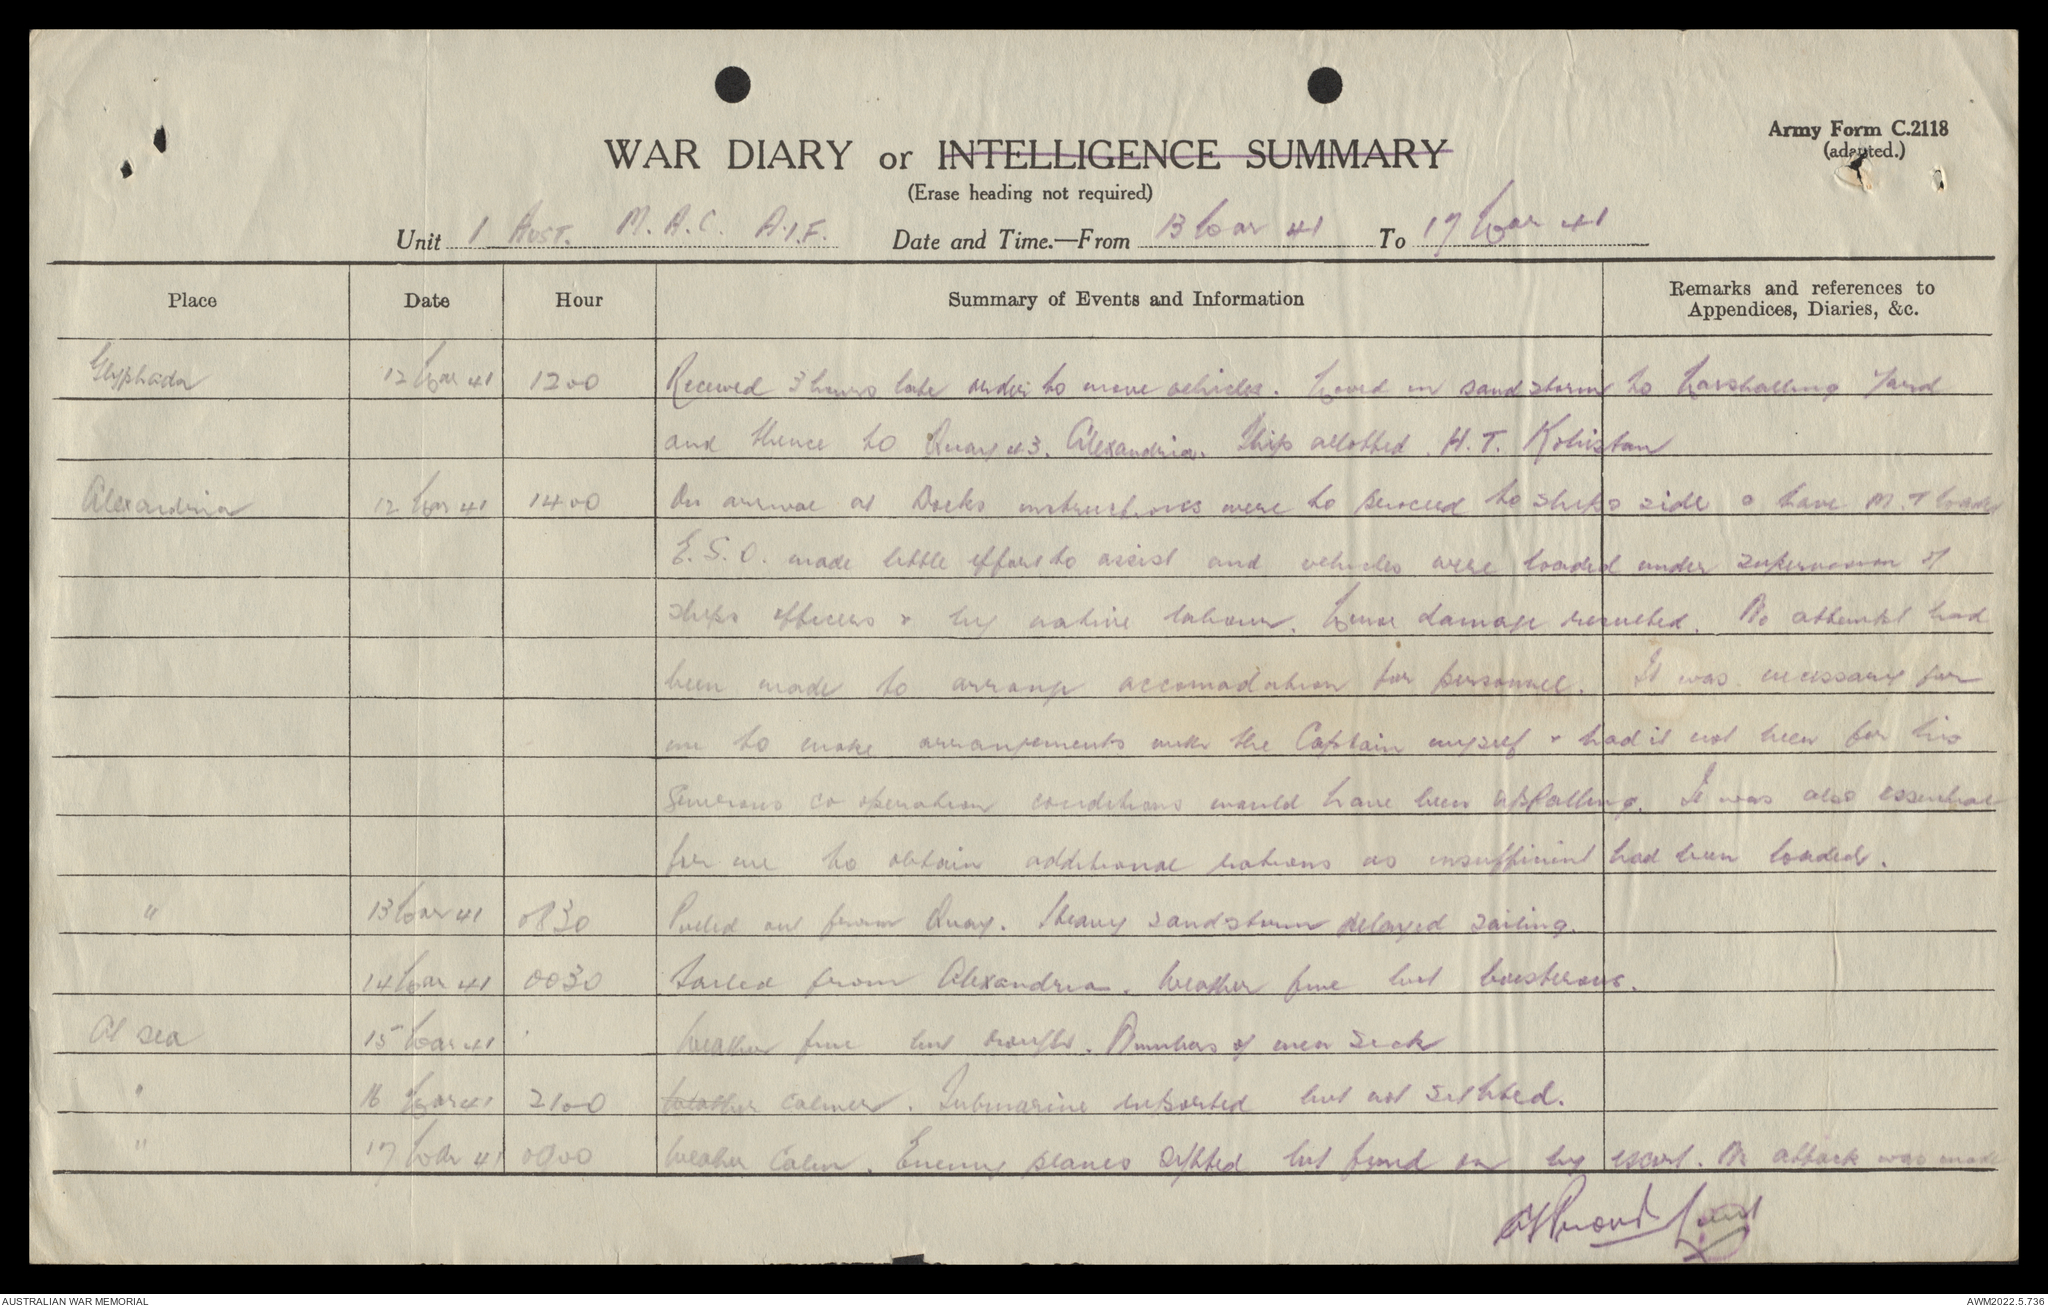 Army Form C.2118
(adapted.)
WAR DIARY or INTELLIGENCE SUMMARY
(Erase heading not required)
Unit 1 AUST. M.A.C. A.I.F. Date and Time.—From 13 Mar 41 To 17 Mar 41
Place Date Hour Summary of Events and Information Remarks and references to Appendices, Diaries, &c.
Glyphada 12 Mar 41 1200 Received 3 hours late order to move vehicles. Moved in sandstorm to Marshalling Yard
and thence to Quay 43. Alexandria. Ship allotted. H.T. Kohistan
Alexandria 12 Mar 41 1400 On arrival at Docks instructions were to proceed to ships side & have M.T loaded
E.S.O. made little effort to assist and vehicles were loaded under supervision of
ships officers & by native labour. Minor damage resulted. No attempt had
been made to arrange accomodation for personnel. It was necessary for
me to make arrangements with the Captain myself & had it not been for his
generous co operation conditions would have been appalling. It was also essential
for me to obtain additional rations as insufficient had been loaded.
" 13 Mar 41 0830 Pulled out from Quay. Heavy sandstorm delayed sailing.
14 Mar 41 0030 Sailed from Alexandria. Weather fine but boisterous.
At sea 15 Mar 41 Weather fine but rough. Numbers of men sick
" 16 Mar 41 2100 Weather calmer. Submarine reported but not sighted.
" 17 Mar 41 0900 Weather calm. Enemy planes sighted but fired on by escort. No attack was made
AUSTRALIAN WAR MEMORIAL
AWM2022.5.736